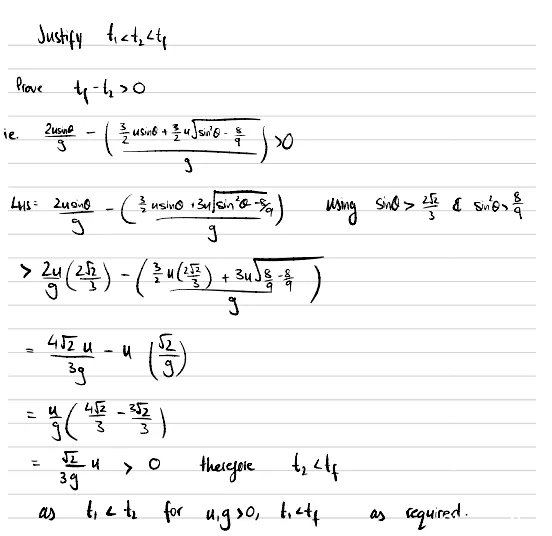 Justify t₁<t₂<t_f
Prove t_f - t₂ > 0
ie. 2usinθ/g - ((3/2 usinθ + 3/2 u√(sin²θ - 8/9))/g) > 0
LHS = 2usinθ/g - ((3/2 usinθ + 3u√(sin²θ - 8/9))/g) using sinθ > 2√2/3 & sin²θ > 8/9
> 2u/g (2√2/3) - ((3/2 u(2√2/3) + 3u√(8/9 - 8/9))/g)
= 4√2 u/3g - u (√2/g)
= u/g (4√2/3 - 3√2/3)
= √2/3g u > 0 therefore t₂ < t_f
as t₁ < t₂ for u,g >0, t₁ < t_f as required.